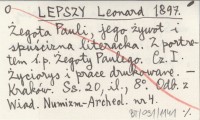 0 LEPSZY Leonard 1897.
Żegota Pauli, jego żywot i
spuścizna literacka. Z portre-
tem ś.p. Żegoty Paulego. Cz. I.
Życiorys i prace drukowane. —
Kraków. Ss. 20, il., 8°. Odb. z
Wiad. Numizm.-Archeol. nr 4.